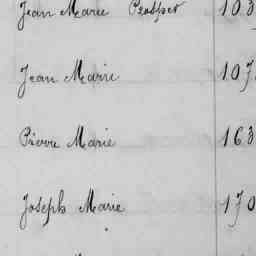 Jean Marie Prosper 103
Jean Marie 107
Pierre Marie 163
Joseph Marie 170